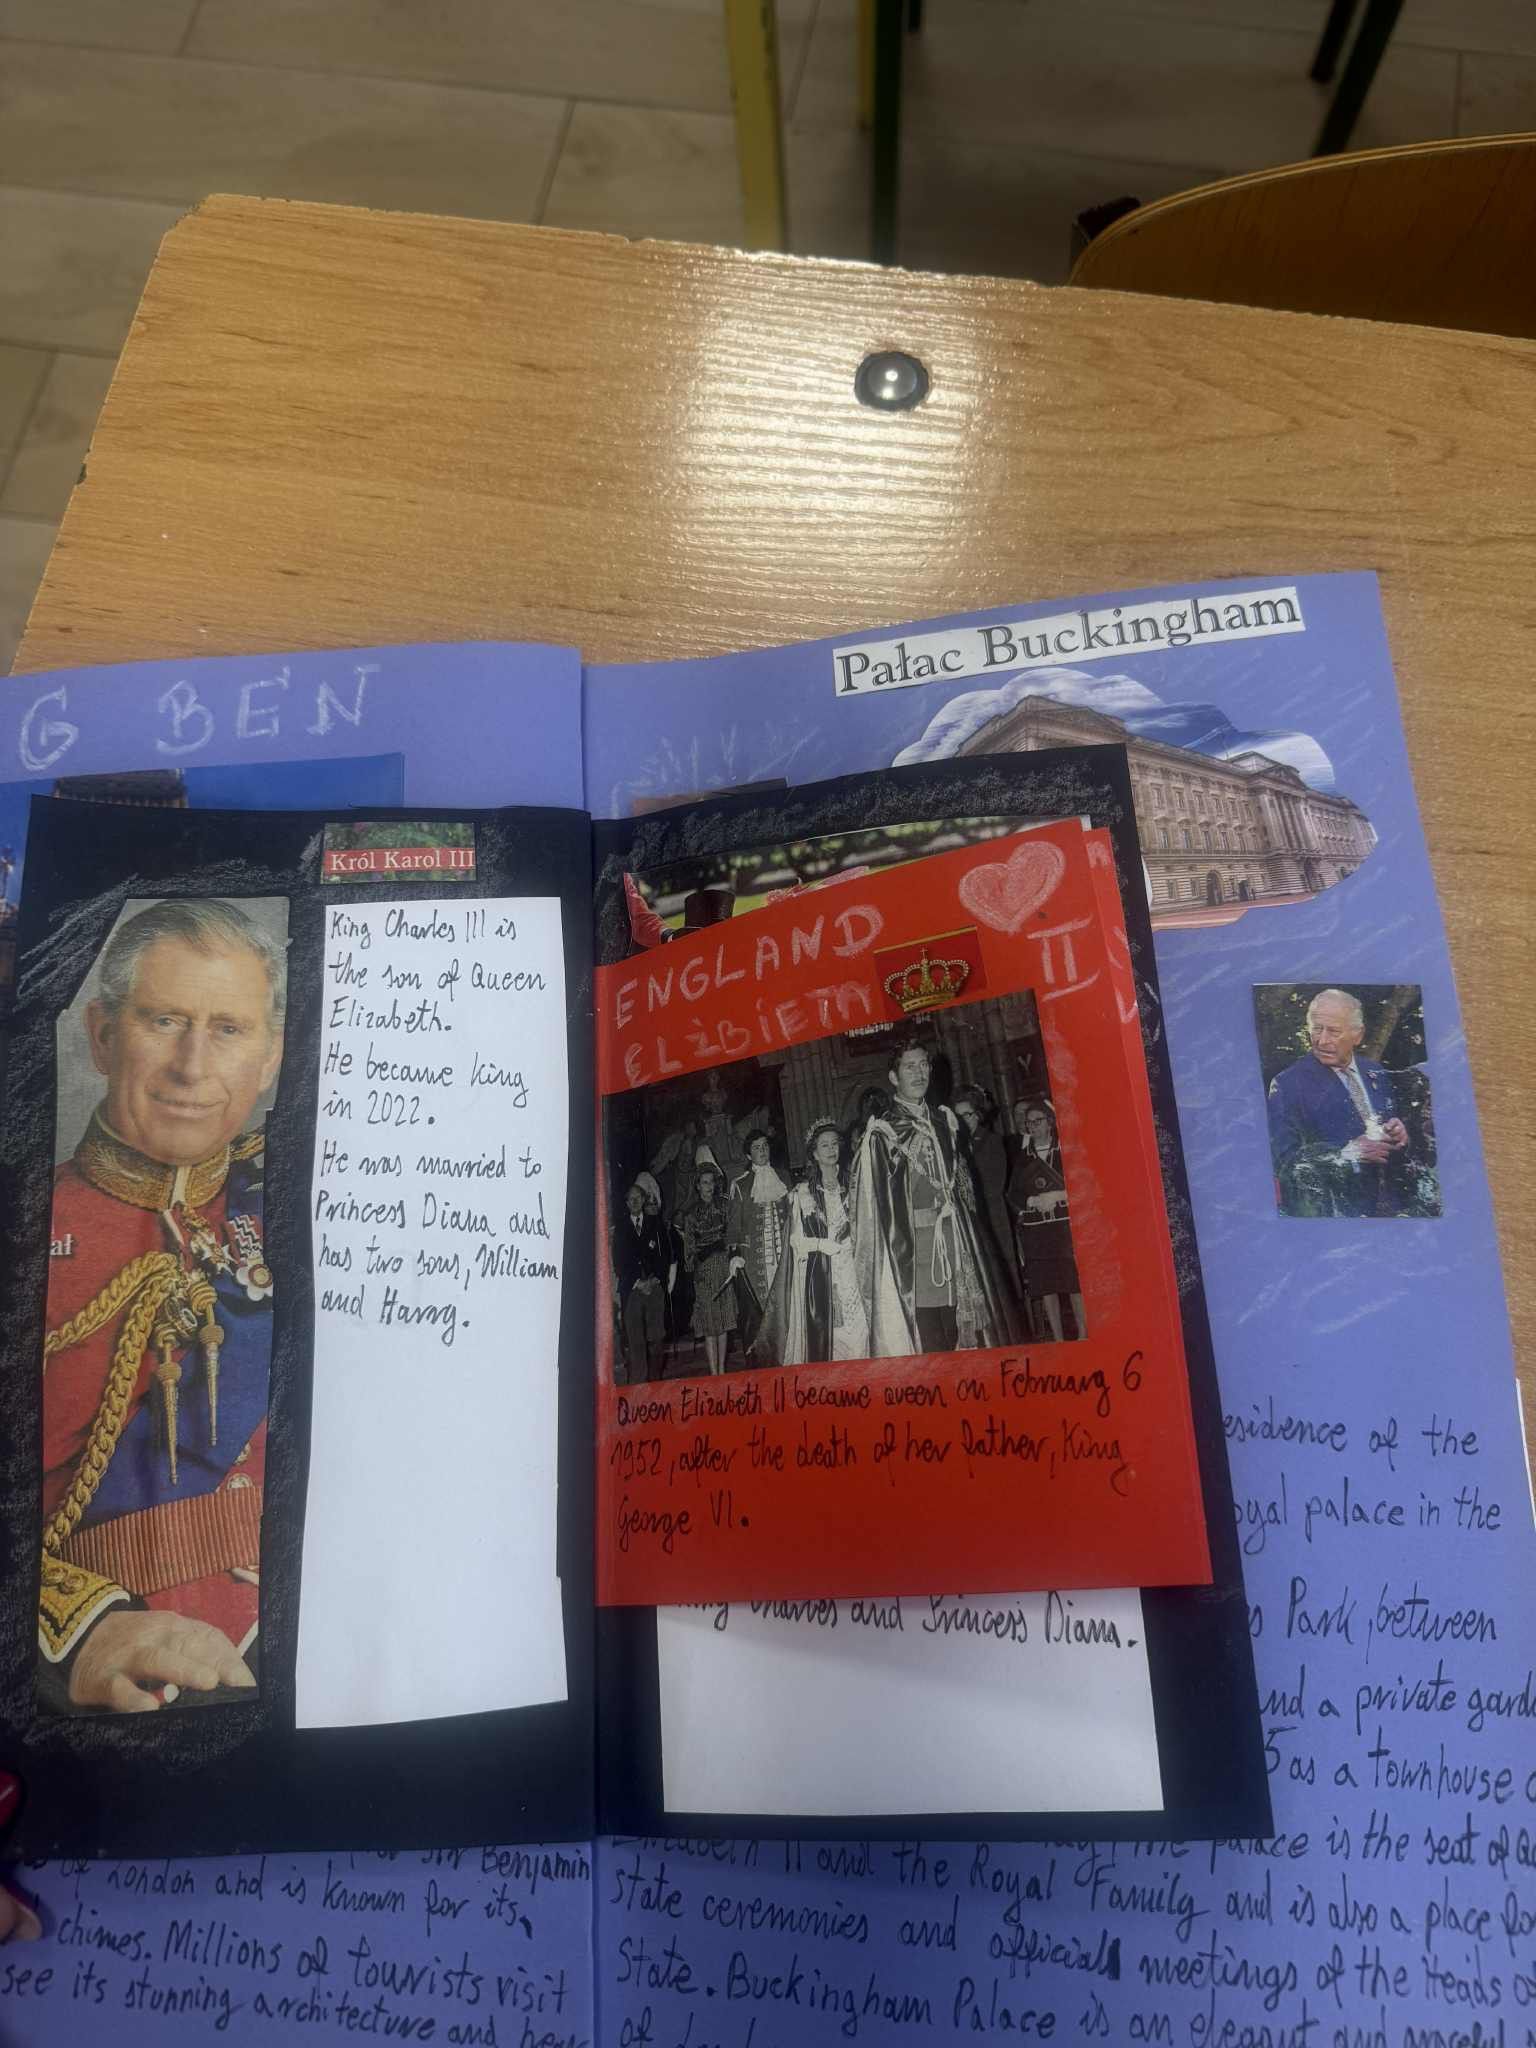 G BEN
Pałac Buckingham
Król Karol III
King Charles III is
the son of Queen
Elizabeth.
He became king
in 2022.
He was married to
Princess Diana and
has two sons, William
and Harry.
ał
ENGLAND
ELŻBIETA II
Queen Elizabeth II became queen on February 6
1952, after the death of her father, King
George VI.
Charles and Princess Diana.
esidence of the
oyal palace in the
s Park, between
and a private gard
5 as a townhouse
palace is the seat of
Elizabeth II and the Royal Family and is also a place fo
state ceremonies and official meetings of the Heads of
State. Buckingham Palace is an elegant and graceful
of
Benjamin
of London and is known for its
chimes. Millions of tourists visit
see its stunning architecture and hear